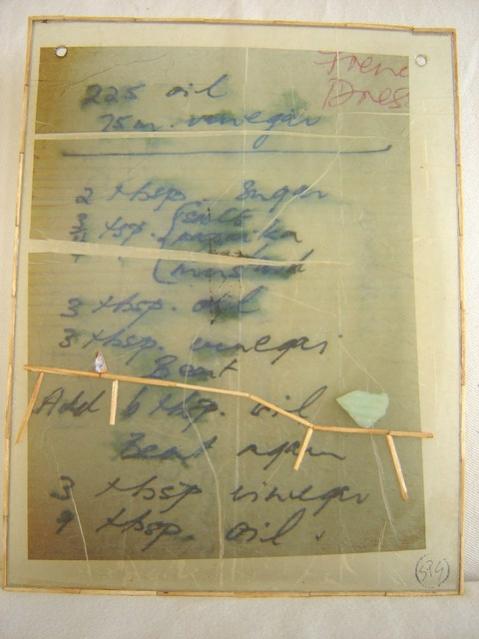 Frenc
Dres
225 oil
75 m. vinegar
2 tbsp. Sugar
tsp. { salt
paprika
mustard
3 tbsp. oil
3 tbsp. vinegar
Beat
Add 6 tbsp. oil
Beat again
3 tbsp vinegar
9 tbsp. oil.